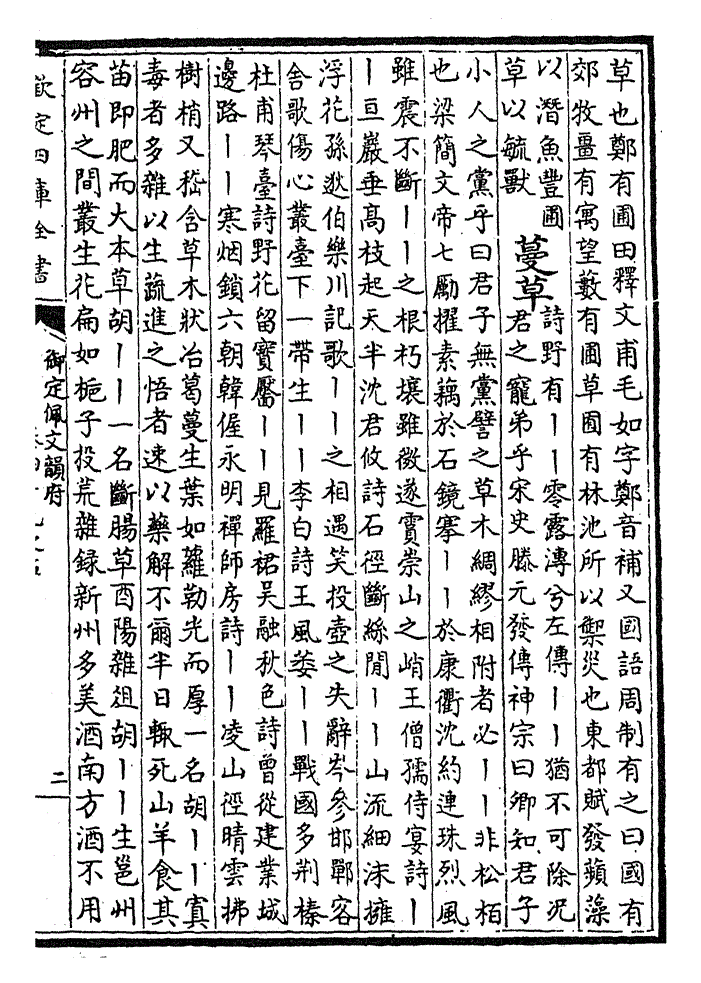 草也鄭有圃田釋文甫毛如字鄭音補又國語周制有之曰國有
郊牧畺有寓望藪有圃草囿有林池所以禦災也東都賦發蘋藻
以潛魚豐圃
草以毓獸
蔓草
詩野有｜｜零露漙兮左傳｜｜猶不可除況
君之寵弟乎宋史滕元發傳神宗曰卿知君子
小人之黨乎曰君子無黨譬之草木綢繆相附者必｜｜非松柏
也梁簡文帝七勵擢素藕於石鏡搴｜｜於康衢沈約連珠烈風
雖震不斷｜｜之根朽壤雖微遂霣崇山之峭王僧孺侍宴詩｜
｜亘巖垂高枝起天半沈君攸詩石徑斷絲閒｜｜山流細沫擁
浮花孫逖伯樂川記歌｜｜之相遇笑投壺之失辭岑參邯鄲客
舍歌傷心叢臺下一帶生｜｜李白詩王風萎｜｜戰國多荆榛
杜甫琴臺詩野花留寶靨｜｜見羅裙吳融秋色詩曾從建業城
邊路｜｜寒烟鎖六朝韓偓永明禪師房詩｜｜凌山徑晴雲拂
樹梢又嵇含草木狀冶葛蔓生葉如蘿勒光而厚一名胡｜｜寘
毒者多雜以生蔬進之悟者速以藥解不爾半日輒死山羊食其
苗即肥而大本草胡｜｜一名斷腸草酉陽雜俎胡｜｜生邕州
容州之間叢生花扁如梔子投荒雜錄新州多美酒南方酒不用
欽定四庫全書
御定佩文韻府
二